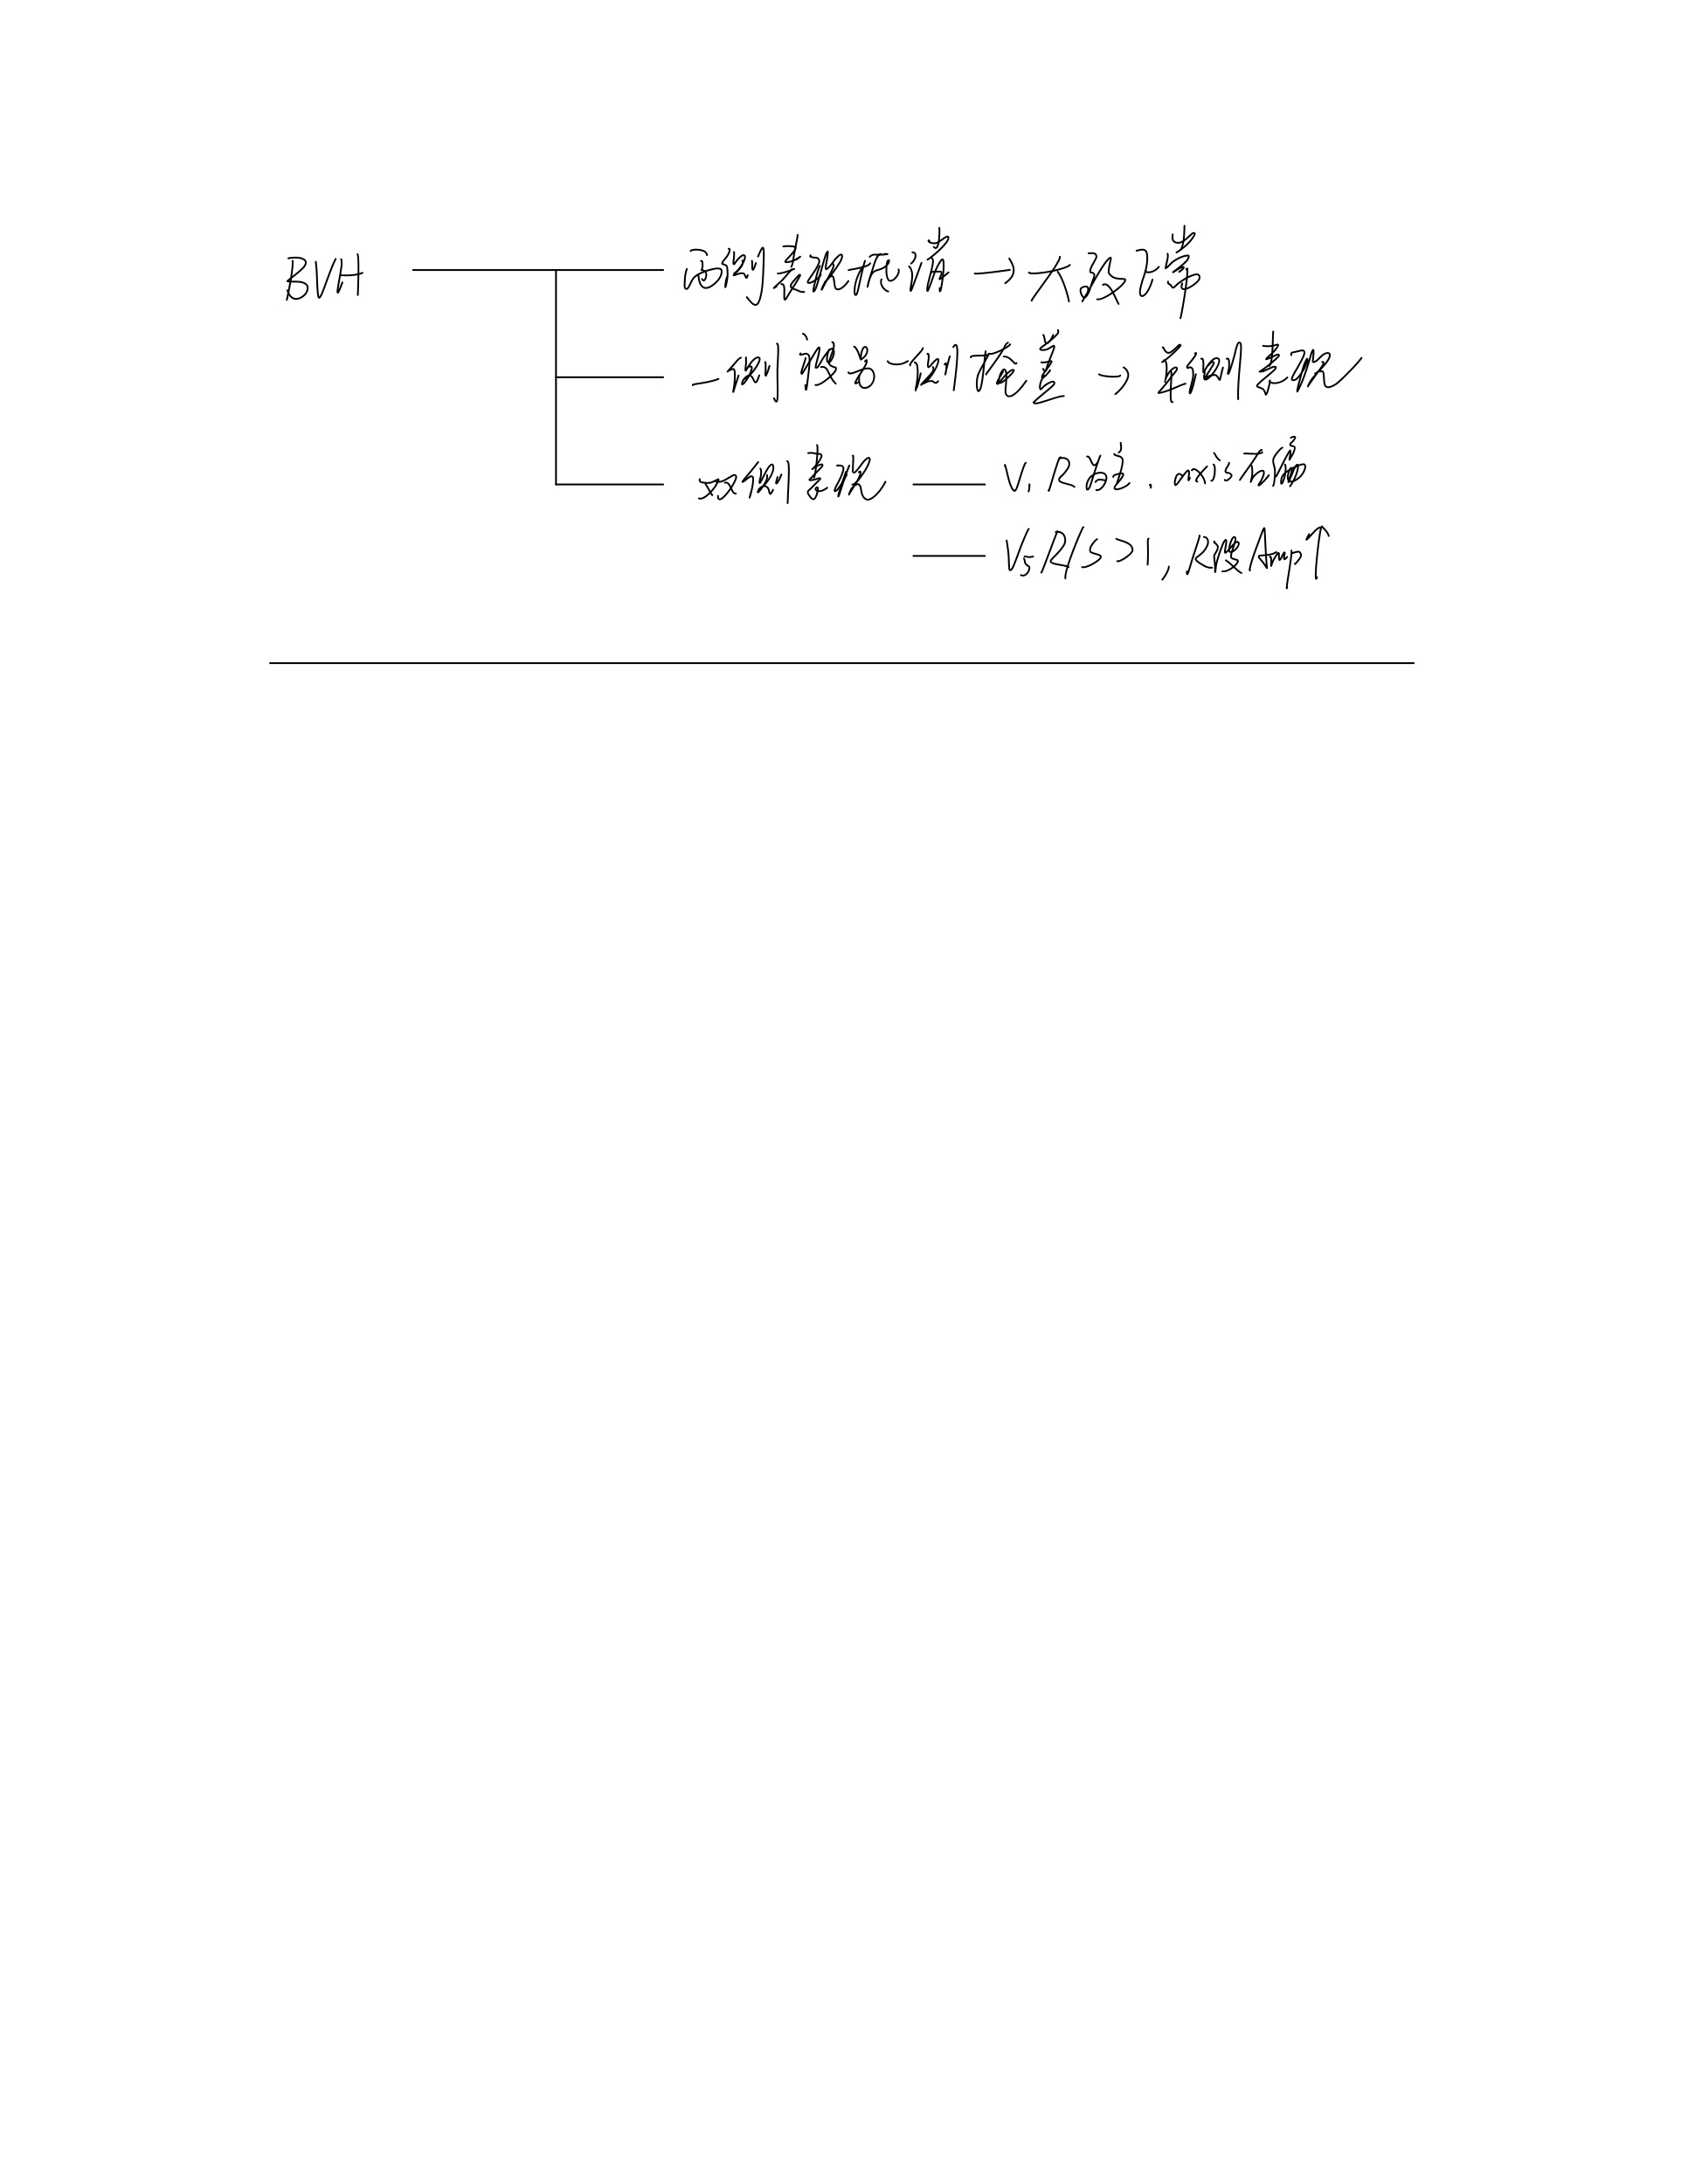 BVH 两侧表现抵消 → 大致正常
一侧被另一侧掩盖 → 单侧表现
双侧表现 V₁R高, 
V₅R/S>1, R波Amp↑